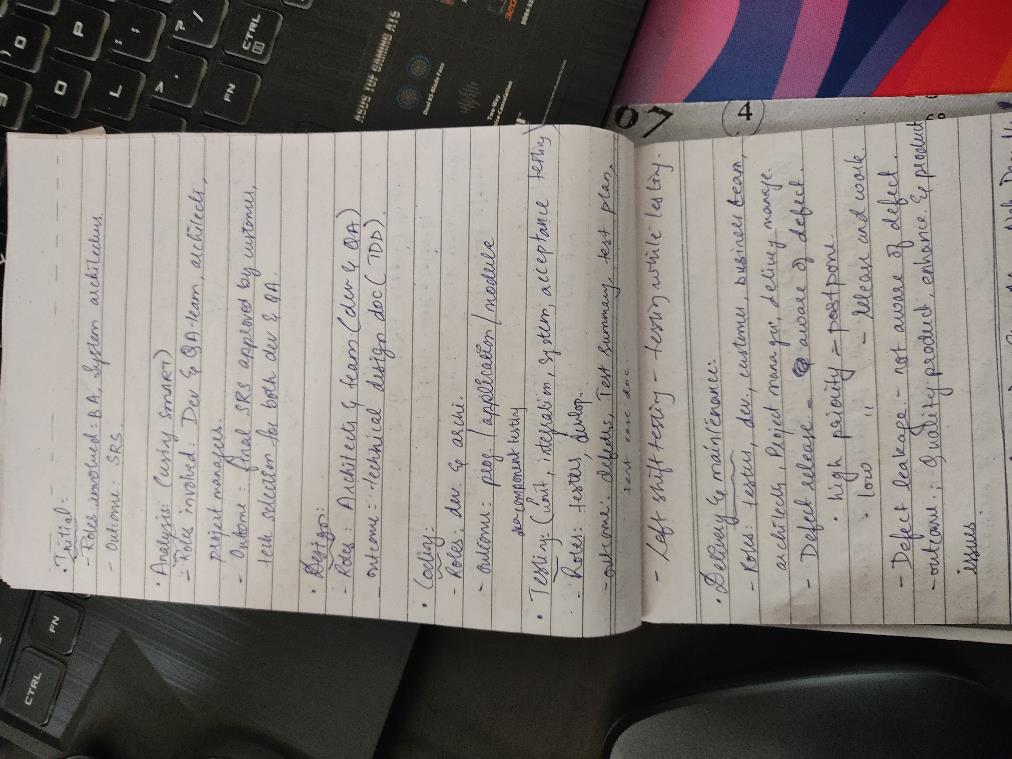 • Initial:
- Roles involved: BA, System architectures
- Outcome: SRS.
• Analysis: (using SMART)
- Roles involved: Dev & QA-team, architects,
project managers.
- Outcome: final SRS approved by customer,
tech selection for both dev & QA.
• Design:
- Roles: Architects & team (dev & QA)
outcome: technical design doc (TDD).
• Coding:
- Roles: dev. & archi.
- outcome: prog. / application / module
component testing
• Testing: (Unit, integration, system, acceptance testing)
- Roles: tester, develop.
- outcome: defects, Test summary, test plan.
test case doc
- Left shift testing - testing while testing.
• Delivery & maintenance:
- Roles: tester, dev, customer, business team,
architects, Project manager, delivery manage.
- Defect release - aware of defect.
• high periority = postpone
• low " - release and work.
- Defect leakage - not aware of defect.
- outcome: Quality product, enhance & product
issues
07
4
ASUS TUF GAMING A15
P
L
O
CTRL
FN
FN
CTRL